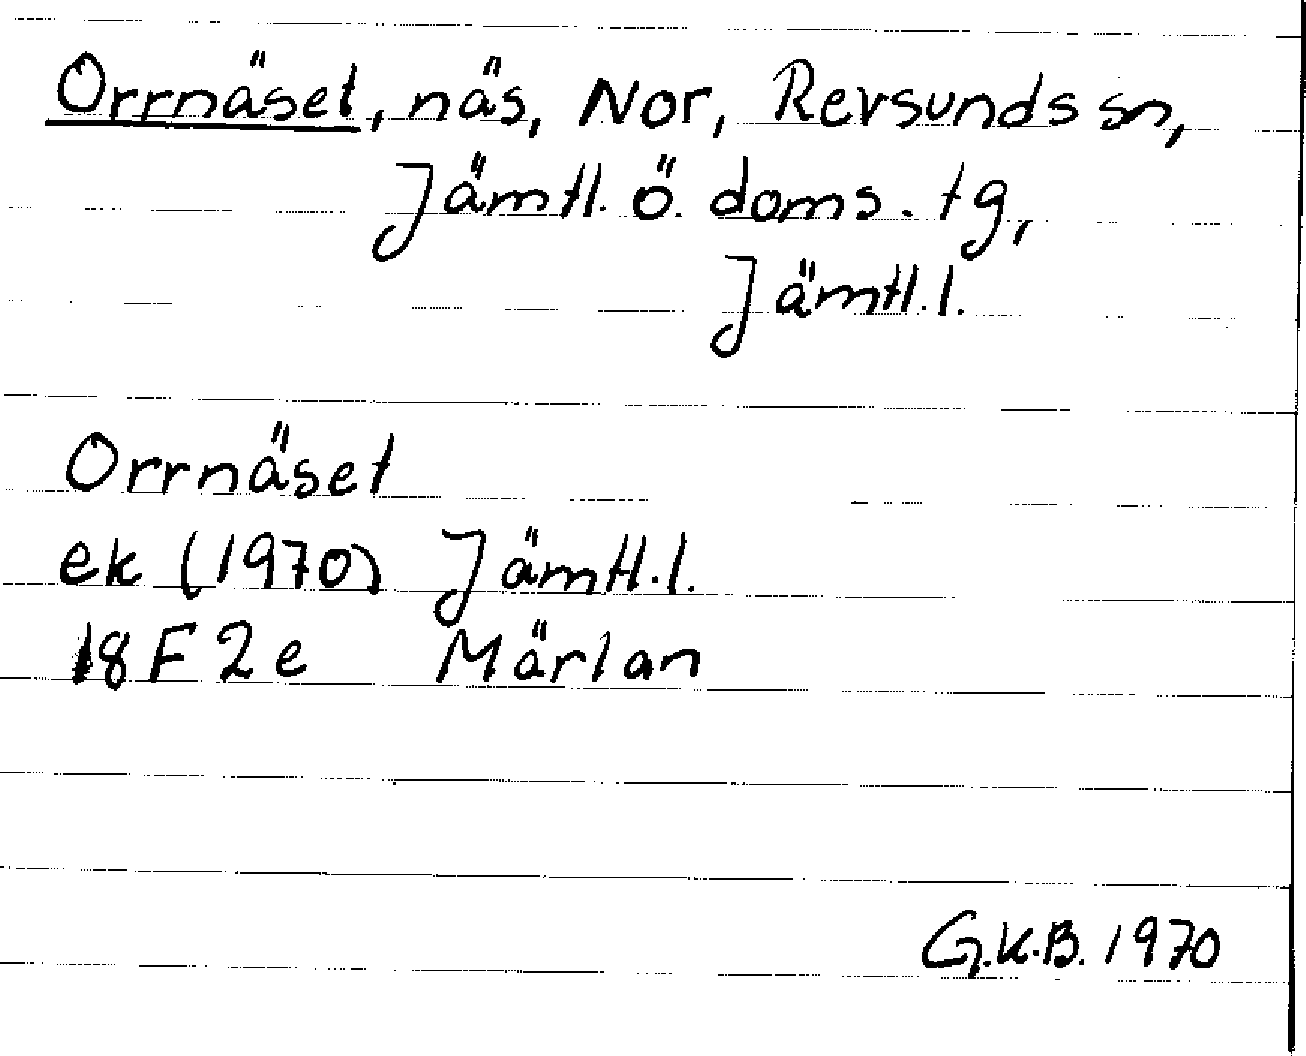 Orrnäset, näs, Nor, Revsunds sn,
Jämtl. ö. doms. tg,
Jämtl. l.
Orrnäset
ek (1970) Jämtl. l.
18 F 2 e Märlan
G.K.B. 1970